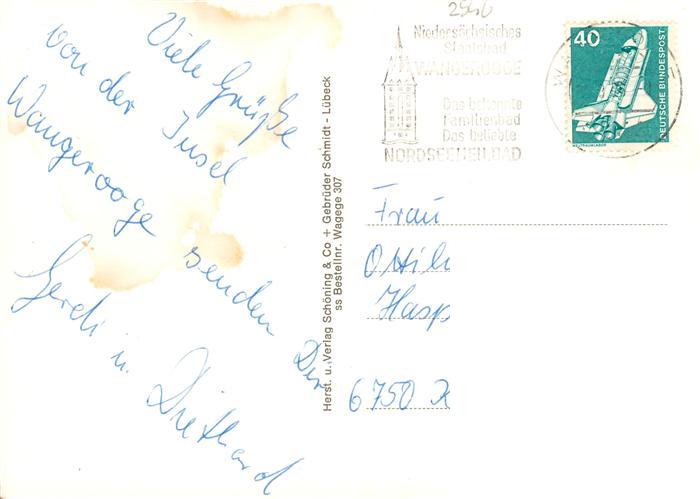 Viele Grüße
von der Insel
Wangerooge senden Dir
Gerdi u. Diethard
Herst. u. Verlag Schöning & Co + Gebrüder Schmidt - Lübeck
ss Bestellnr. Wagege 307
2946
Niedersächsisches
Staatsbad
WANGEROOGE
Das bekannte
Familienbad
Das beliebte
NORDSEEHEILBAD
40
DEUTSCHE BUNDESPOST
WELTRAUMLABOR
Frau
Ottili
Hasp
6750 K